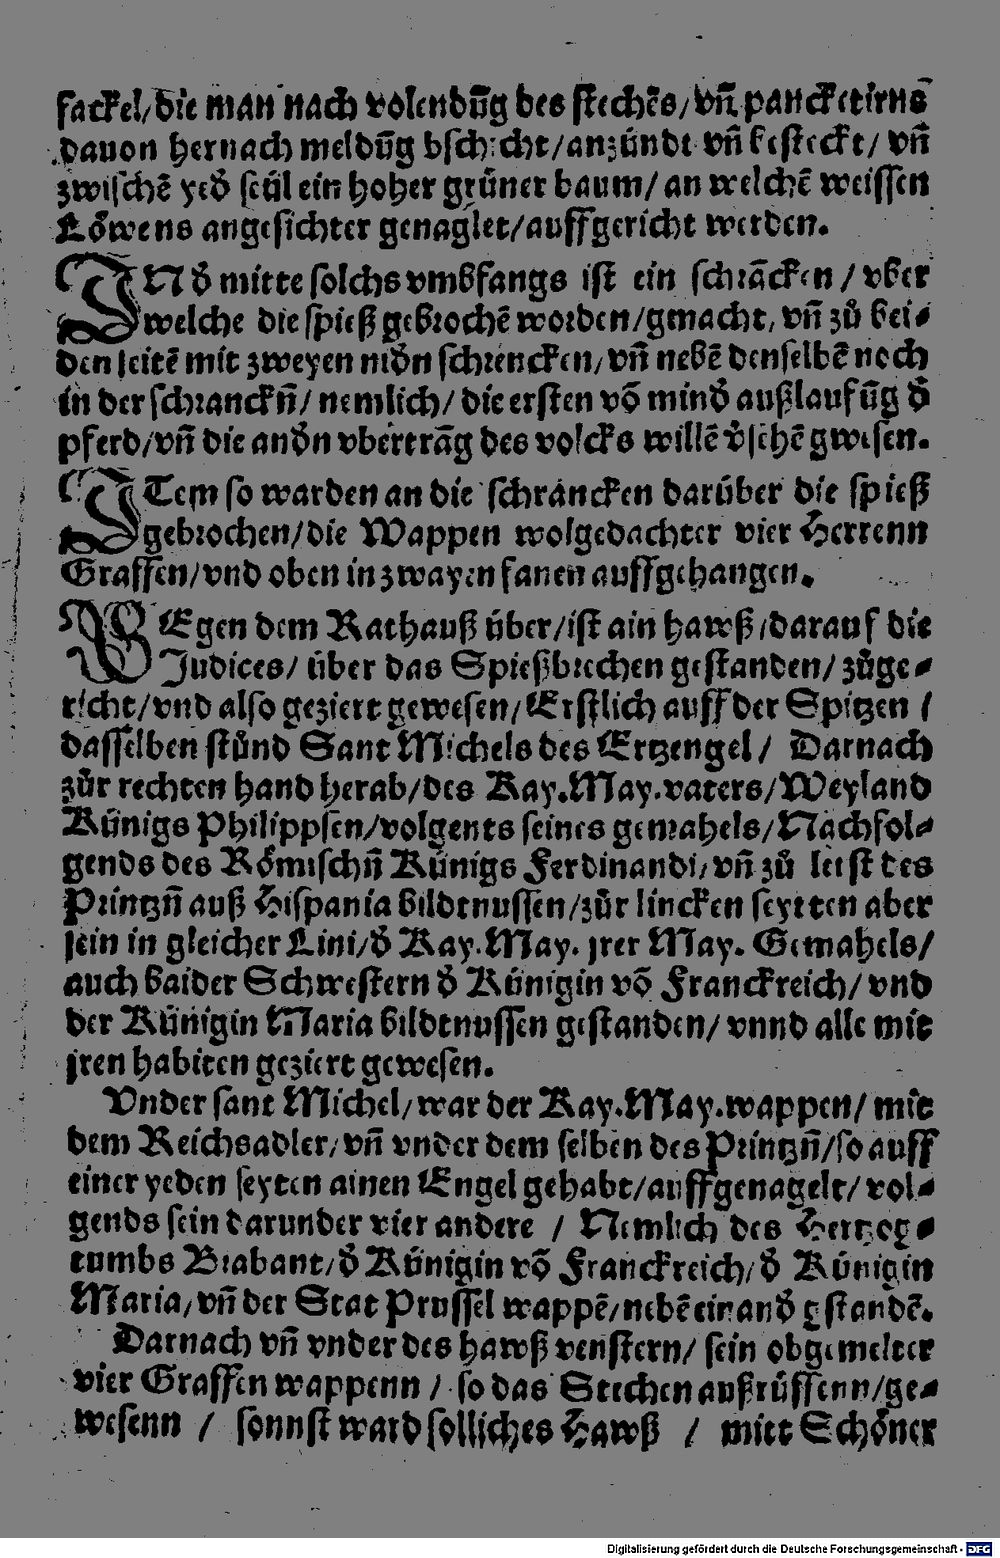 fackel/die man nach volendūg des stechēs/vñ pancketirns
dauon hernach meldūg bschicht/anzündt vñ besteckt/vñ
zwischē yed̄ seül ein hoher grüner baum/an welchē weissen
Löwens angesichter genaglet/auffgericht werden.
IN d̄ mitte solchs vmbfangs ist ein schrācken/vber
welche die spieß gebrochē worden/gmacht, vñ zů bei⸗
den seitē mit zweyen nid̄n schrencken/vñ nebē denselbē noch
in der schranckñ/nemlich/die ersten vō mind̄ außlaufūg d̄
pferd/vñ die and̄n vbertrāg des volcks willē v̄sehē gwesen.
ITem so warden an die schrancken darüber die spieß
gebrochen/die Wappen wolgedachter vier Herrenn
Graffen/vnd oben in zwayen fanen auffgehangen.
GEgen dem Rathauß über/ist ain hawß/darauf die
Judices/über das Spießbrechen gestanden/zůge⸗
richt/vnd also geziert gewesen/Erstlich auff der Spitzen/
dasselben stůnd Sant Michels des Ertzengel/ Darnach
zůr rechten hand herab/des Kay.May.vaters/Weyland
Künigs Philippsen/volgents seines gemahels/Nachfol⸗
gends des Römischñ Künigs Ferdinandi/vñ zů letst des
Printzñ auß Hispania bildtnussen/zůr lincken seytten aber
sein in gleicher Lini/d̄ Kay.May. jrer May. Gemahels/
auch baider Schwestern d̄ Künigin vō Franckreich/vnd
der Künigin Maria bildtnussen gestanden/vnnd alle mit
jren habiten geziert gewesen.
Vnder sant Michel/war der Kay.May.wappen/mit
dem Reichsadler/vñ vnder dem selben des Printzñ/so auff
einer yeden seyten ainen Engel gehabt/auffgenagelt/vol⸗
gends sein darunder vier andere / Nemlich des Hertzog⸗
tumbs Brabant/d̄ Künigin vō Franckreich/d̄ Künigin
Maria/vñ der Stat Prussel wappē/nebē einand̄ gstandē.
Darnach vñ vnder des hawß venstern/sein obgemelter
vier Graffen wappenn / so das Stechen außrüffenn/ge⸗
wesenn / sonnst ward solliches Hawß / mitt Schöner
Digitalisierung gefördert durch die Deutsche Forschungsgemeinschaft - DFG